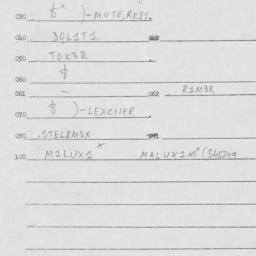 030 $* )-MUTE,RKP1.
040 DOL1T1
050 TOK3R
060 $
061 - 062 R1M3R
070 $ )-LEXCIJER
090 .STELRM3X
100 M1LUX1* MALUX1M*($48249